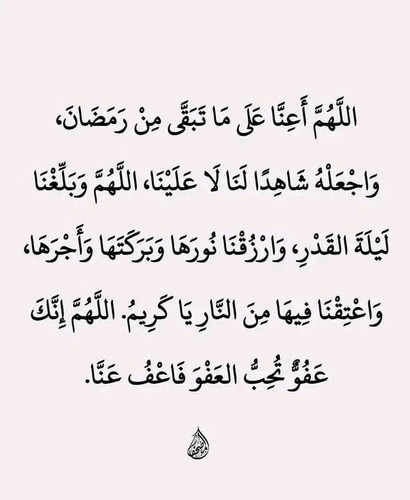 اللَّهُمَّ أَعِنَّا عَلَى مَا تَبَقَّى مِنْ رَمَضَانَ،
وَاجْعَلْهُ شَاهِدًا لَنَا لَا عَلَيْنَا، اللَّهُمَّ وَبَلِّغْنَا
لَيْلَةَ القَدْرِ، وَارْزُقْنَا نُورَهَا وَبَرَكَتَهَا وَأَجْرَهَا،
وَاعْتِقْنَا فِيهَا مِنَ النَّارِ يَا كَرِيمُ. اللَّهُمَّ إِنَّكَ
عَفُوٌّ تُحِبُّ العَفْوَ فَاعْفُ عَنَّا.